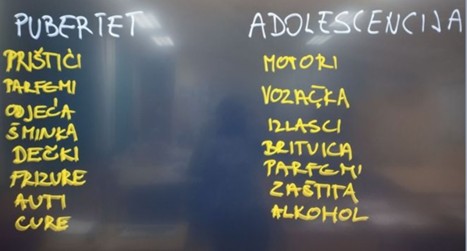 PUBERTET
PRIŠTIĆI
PARFEMI
ODJEĆA
ŠMINKA
DEČKI
FRIZURE
AUTI
CURE
ADOLESCENCIJA
MOTORI
VOZAČKA
IZLASCI
BRITVICA
PARFEMI
ZAŠTITA
ALKOHOL